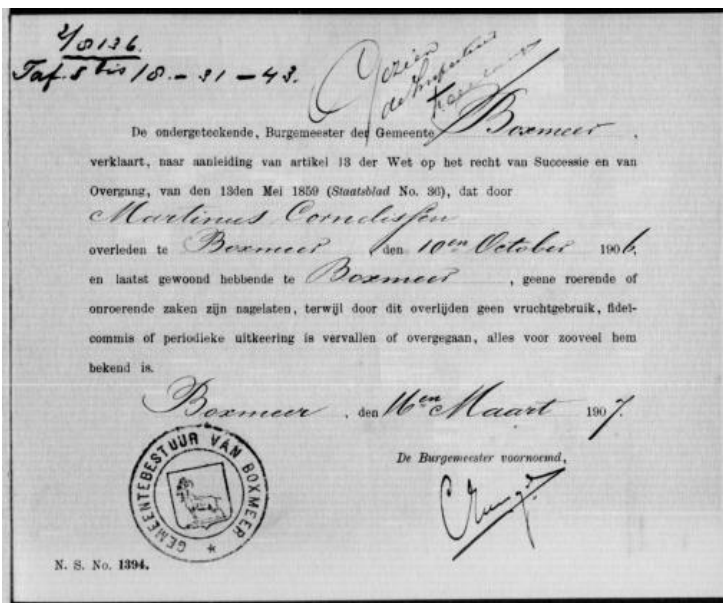 2/8136.
Taf. 8 bis 18. - 31 - 43.
Gezien
de Inspecteur
De ondergeteekende, Burgemeester der Gemeente Boxmeer,
verklaart, naar aanleiding van artikel 13 der Wet op het recht van Successie en van
Overgang, van den 13den Mei 1859 (Staatsblad No. 36), dat door
Martinus Cornelissen
overleden te Boxmeer den 10en October 1906,
en laatst gewoond hebbende te Boxmeer, geene roerende of
onroerende zaken zijn nagelaten, terwijl door dit overlijden geen vruchtgebruik, fidei-
commis of periodieke uitkeering is vervallen of overgegaan, alles voor zooveel hem
bekend is.
Boxmeer, den 16en Maart 1907.
De Burgemeester voornoemd,
GEMEENTEBESTUUR VAN BOXMEER
N. S. No. 1394.